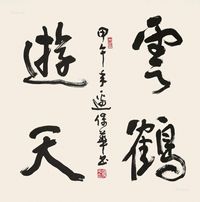 雲鶴
遊天
甲午年
華書